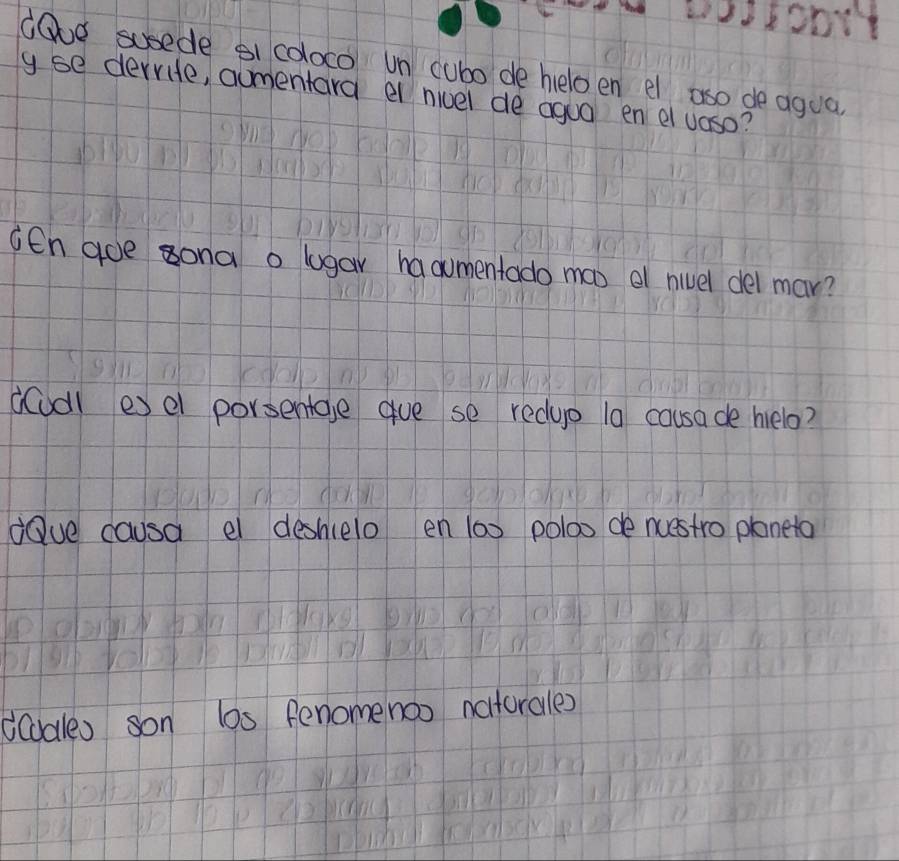 ¿Que susede si coloco un cubo de hielo en el aso de agua,
y se derrite, aumentara el nivel de agua en el vaso?
¿En que zona o lugar ha aumentado mas el nivel del mar?
¿Cual es el porsentaje que se redujo la causa de hielo?
¿Que causa el deshielo en los polos de nuestro planeta
¿Cuales son los fenomenos naturales